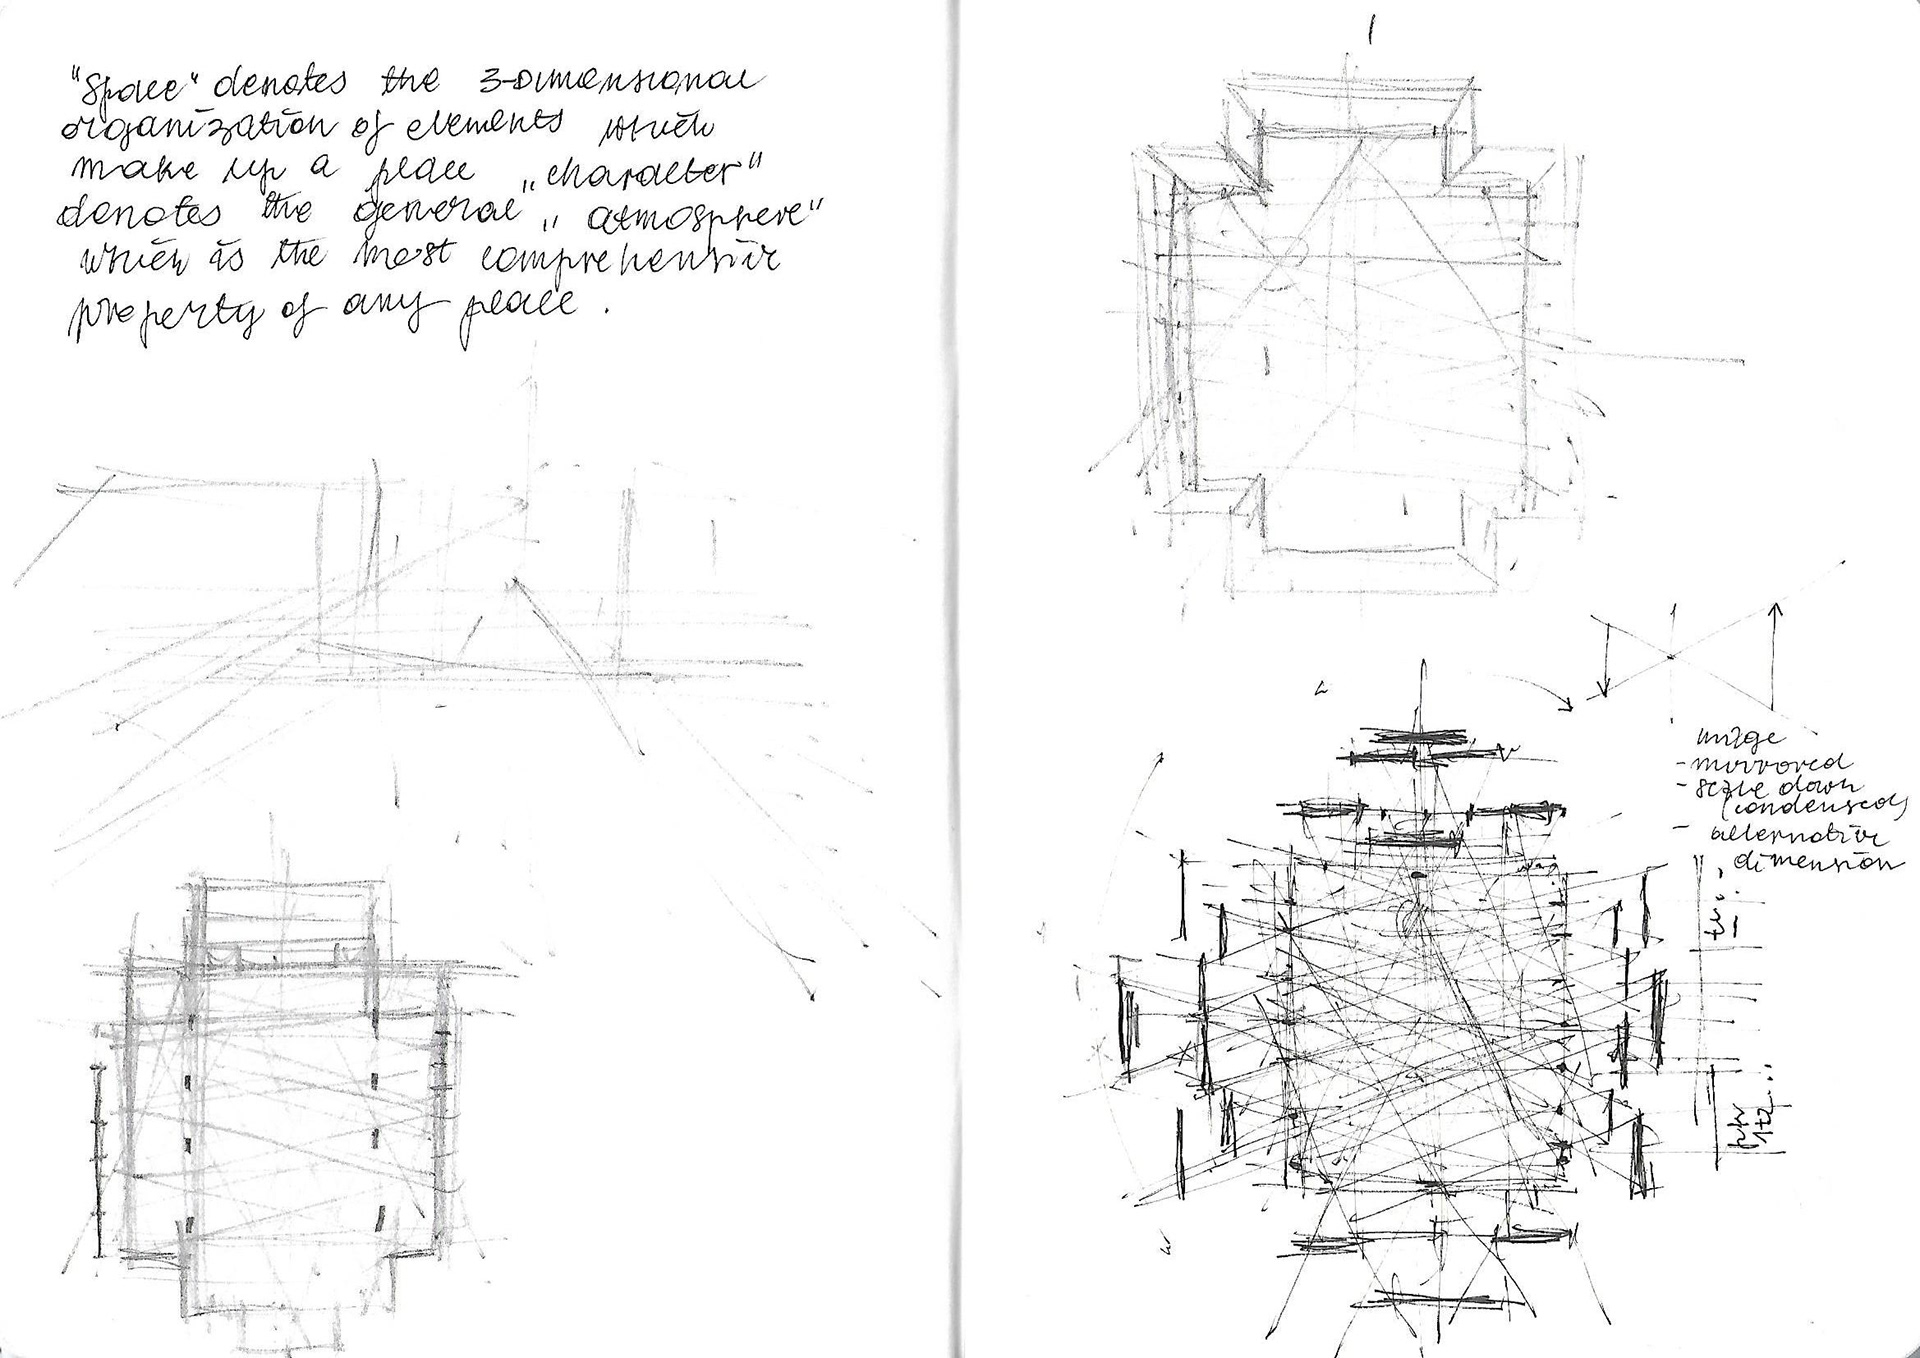 "Space" denotes the 3-dimensional
organization of elements which
make up a place „character"
denotes the general „atmosphere"
which is the most comprehensive
property of any place.
image
- mirrored
- scale down
(condensed)
- alternative
dimension